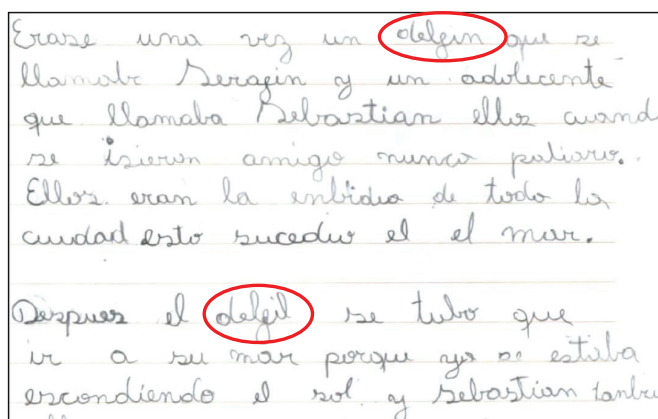 Erase una vez un delfin que se
llamabe Serafin y un adolicente
que llamaba Sebastian ellos cuand
se isieron amigo nunca peliaron.
Ellos eran la enbidia de todo la
cuidad esto sucedio el el mar.
Despues el delfil se tubo que
ir a su mar porque ya se estaba
escondiendo el sol y Sebastian tanbi